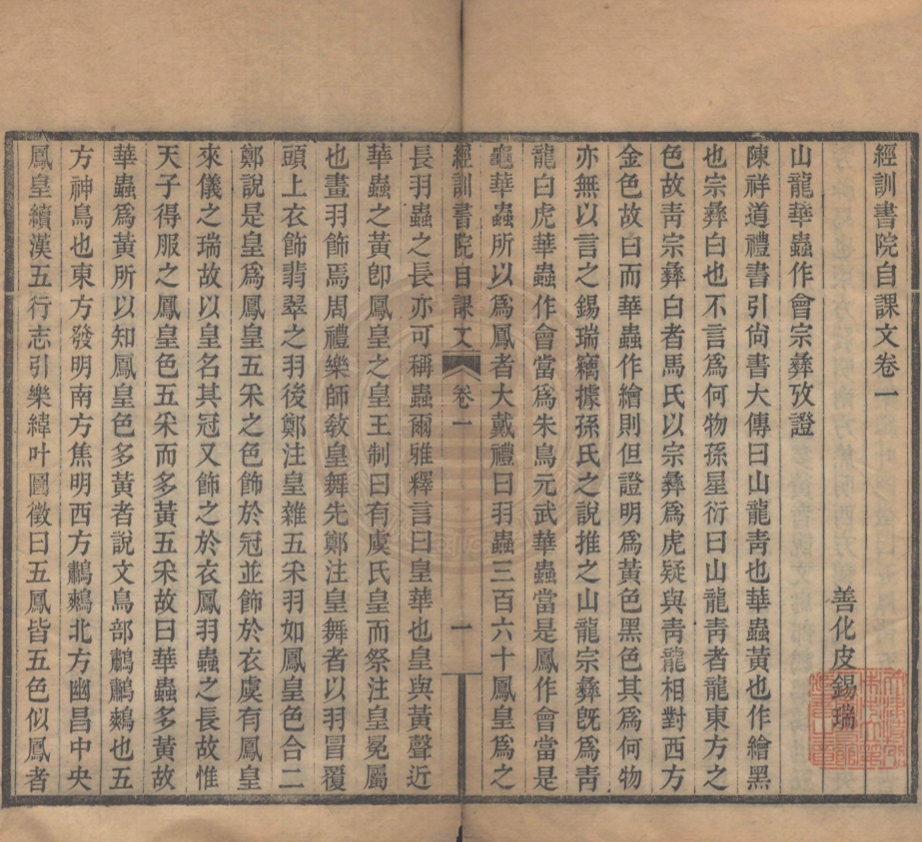 經訓書院自課文卷一
善化皮錫瑞
山龍華蟲作會宗彝攷證
陳祥道禮書引尙書大傳曰山龍靑也華蟲黃也作繪黑
也宗彝白也不言爲何物孫星衍曰山龍靑者龍東方之
色故靑宗彝白者馬氏以宗彝爲虎疑與靑龍相對西方
金色故曰而華蟲作繪則但證明爲黃色黑色其爲何物
亦無以言之錫瑞竊據孫氏之說推之山龍宗彝旣爲靑
龍白虎華蟲作會當爲朱鳥元武華蟲當是鳳作會當是
龜華蟲所以爲鳳者大戴禮曰羽蟲三百六十鳳皇爲之
經訓書院自課文 卷一 一
長羽蟲之長亦可稱蟲爾雅釋言曰皇華也皇與黃聲近
華蟲之黃卽鳳皇之皇王制曰有虞氏皇而祭注皇冕屬
也畫羽飾焉周禮樂師敎皇舞先鄭注皇舞者以羽冒覆
頭上衣飾翡翠之羽後鄭注皇雜五采羽如鳳皇色合二
鄭說是皇爲鳳皇五采之色飾於冠並飾於衣虞有鳳皇
來儀之瑞故以皇名其冠又飾之於衣鳳羽蟲之長故惟
天子得服之鳳皇色五采而多黃五采故曰華蟲多黃故
華蟲爲黃所以知鳳皇色多黃者說文鳥部鸘鸘鷞也五
方神鳥也東方發明南方焦明西方鸘鷞北方幽昌中央
鳳皇續漢五行志引樂緯叶圖徵曰五鳳皆五色似鳳者